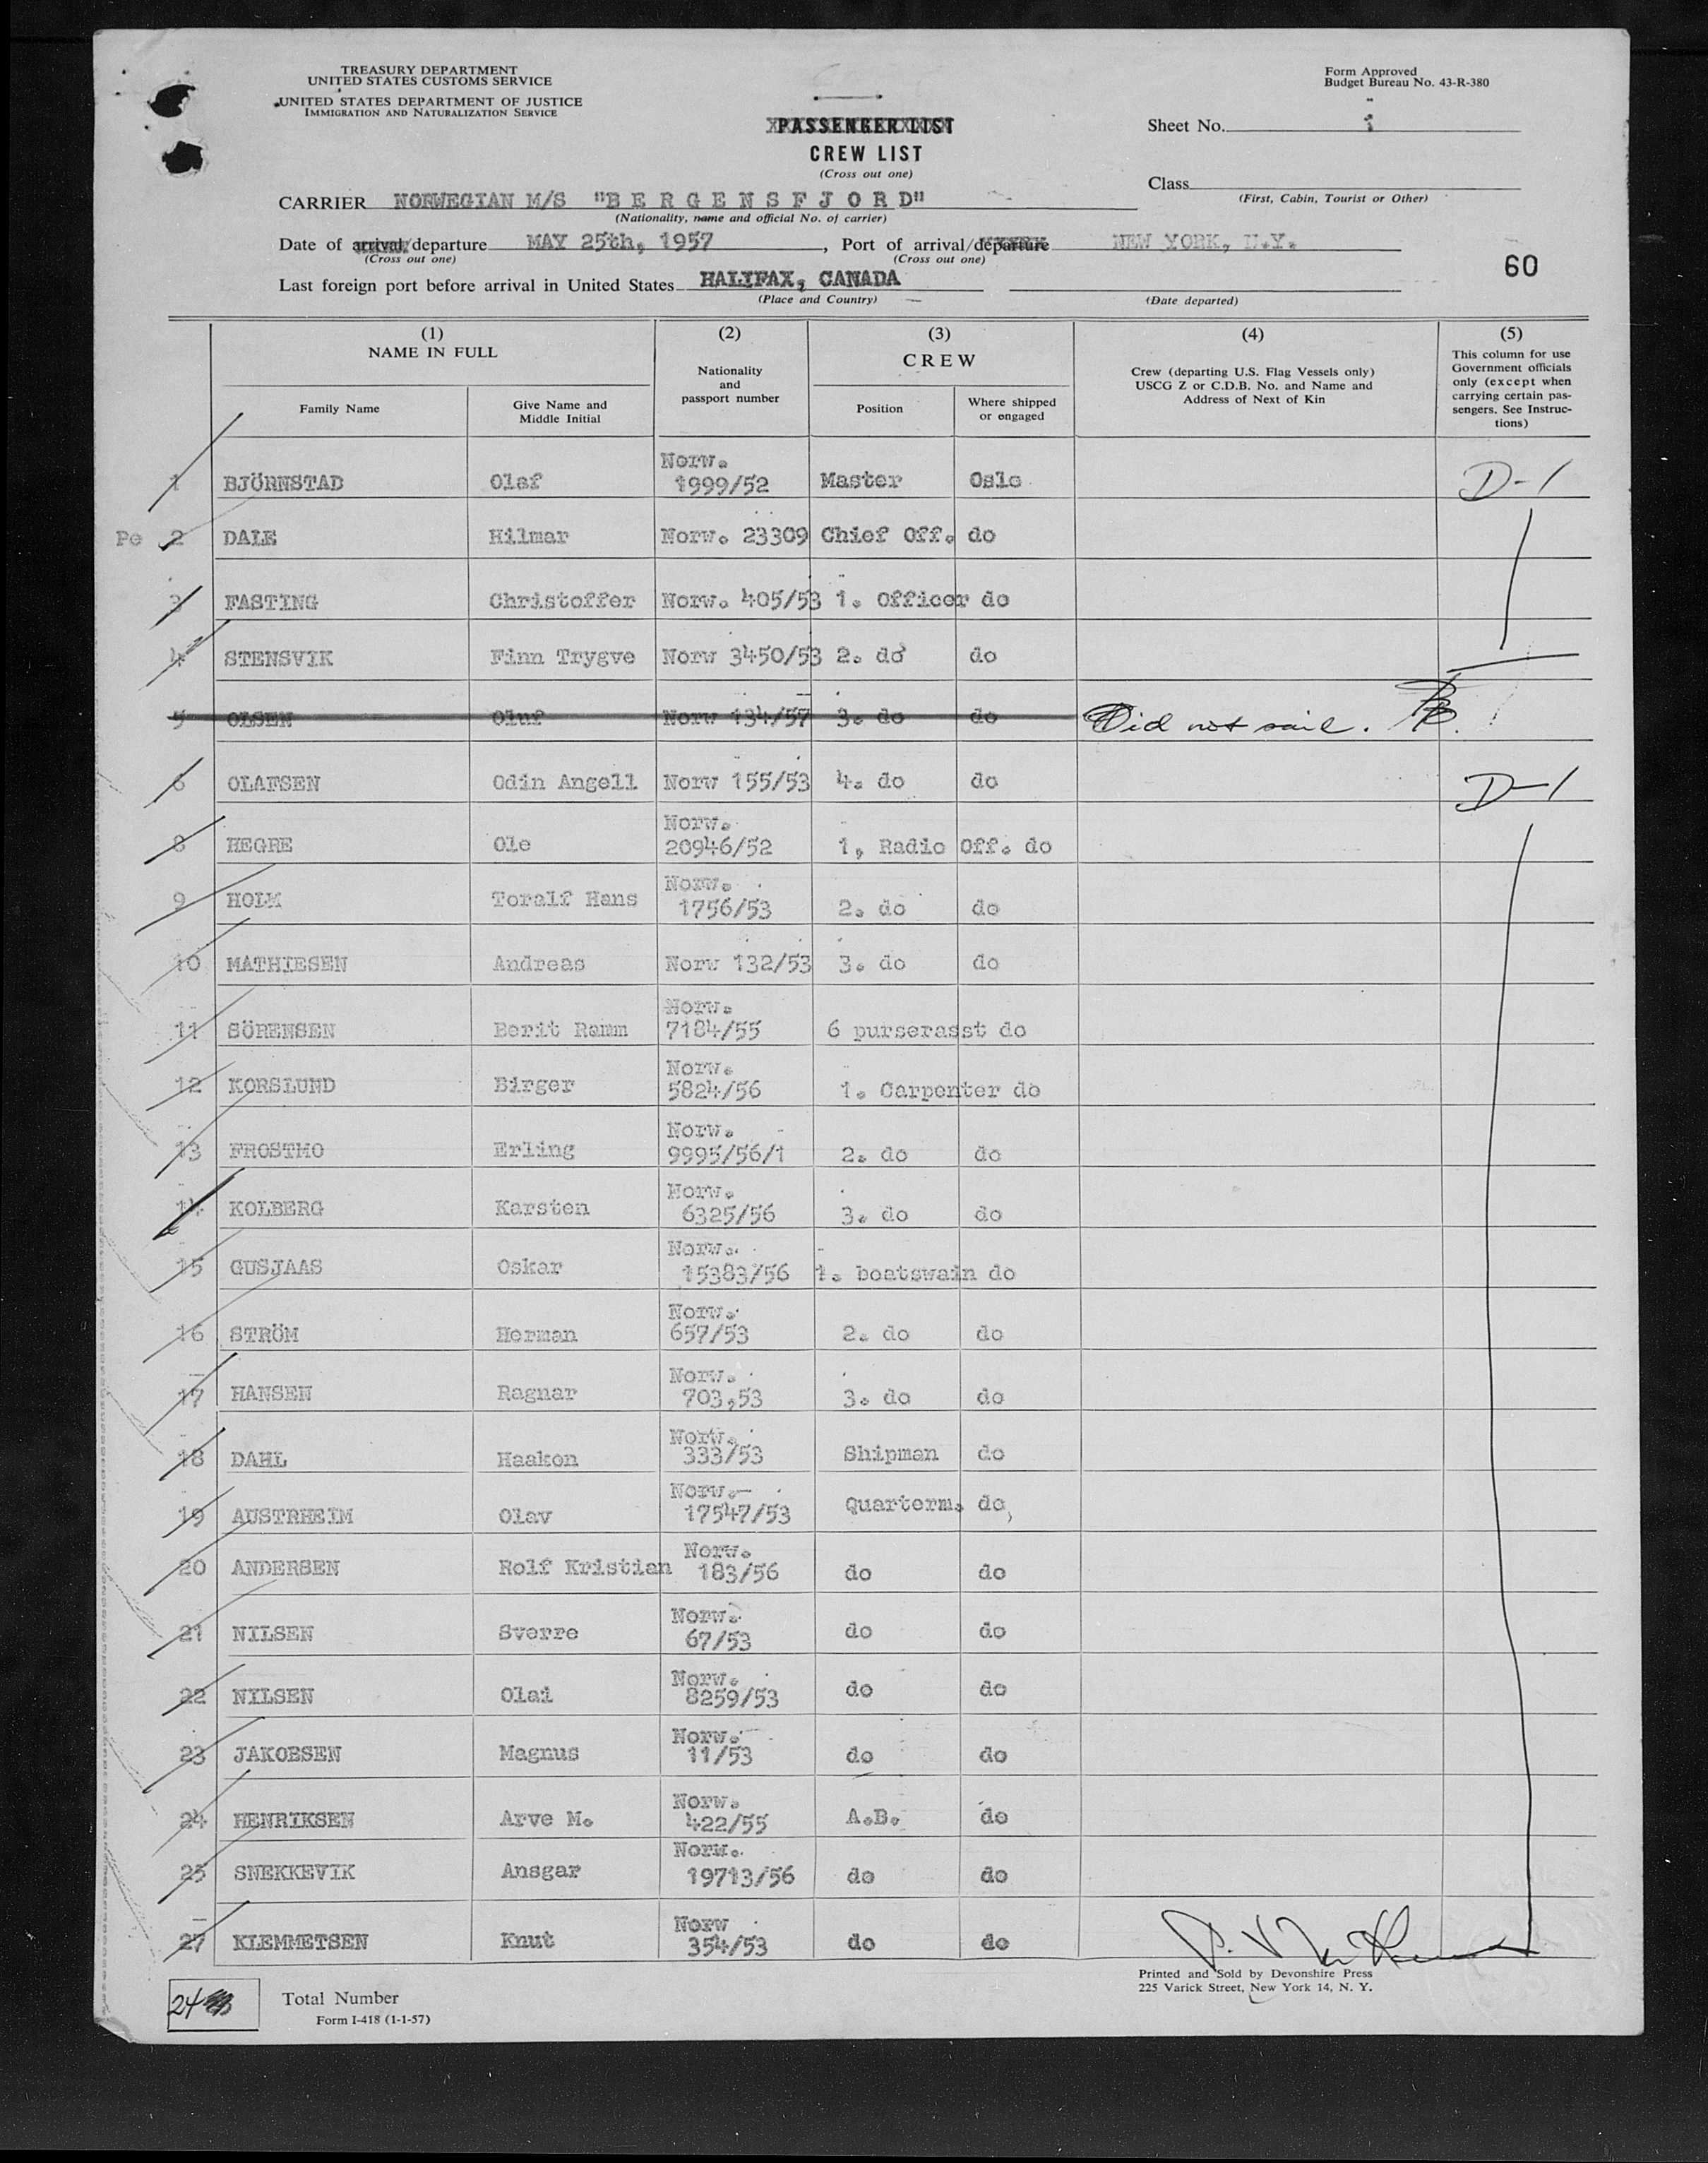 TREASURY DEPARTMENT
UNITED STATES CUSTOMS SERVICE
UNITED STATES DEPARTMENT OF JUSTICE
IMMIGRATION AND NATURALIZATION SERVICE
Form Approved
Budget Bureau No. 43-R-380
PASSENGER LIST
CREW LIST
(Cross out one)
Sheet No. 1
Class
(First, Cabin, Tourist or Other)
CARRIER NORWEGIAN M/S "B E R G E N S F J O R D"
(Nationality, name and official No. of carrier)
Date of arrival/departure MAY 25th, 1957, Port of arrival/departure NEW YORK, N.Y.
(Cross out one) (Cross out one)
60
Last foreign port before arrival in United States HALIFAX, CANADA
(Place and Country) (Date departed)
(1) (2) (3) (4) (5)
NAME IN FULL
Nationality and passport number
CREW
Crew (departing U.S. Flag Vessels only) USCG Z or C.D.B. No. and Name and Address of Next of Kin
This column for use Government officials only (except when carrying certain passengers. See Instructions)
Family Name Give Name and Middle Initial Position Where shipped or engaged
1 BJÖRNSTAD Olaf Norw. 1999/52 Master Oslo D-1
Pe 2 DALE Hilmar Norw. 23309 Chief Off. do
3 FASTING Christoffer Norw. 405/53 1. Officer do
4 STENSVIK Finn Trygve Norw 3450/53 2. do do
5 OLSEN Oluf Norw 134/57 3. do do Did not sail.
6 OLAFSEN Odin Angell Norw 155/53 4. do do D-1
8 HEGRE Ole Norw. 20946/52 1, Radio Off. do
9 HOLM Toralf Hans Norw. 1756/53 2. do do
10 MATHIESEN Andreas Norw 132/53 3. do do
11 SÖRENSEN Berit Ramm Norw. 7184/55 6 purserasst do
12 KORSLUND Birger Norw. 5824/56 1. Carpenter do
13 FROSTMO Erling Norw. 9995/56/1 2. do do
14 KOLBERG Karsten Norw. 6325/56 3. do do
15 GUSJAAS Oskar Norw. 15383/56 1. boatswain do
16 STRÖM Herman Norw. 657/53 2. do do
17 HANSEN Ragnar Norw. 703,53 3. do do
18 DAHL Haakon Norw. 333/53 Shipman do
19 AUSTRHEIM Olav Norw. 17547/53 Quarterm. do
20 ANDERSEN Rolf Kristian Norw. 183/56 do do
21 NILSEN Sverre Norw. 67/53 do do
22 NILSEN Olai Norw. 8259/53 do do
23 JAKOBSEN Magnus Norw. 11/53 do do
24 HENRIKSEN Arve M. Norw. 422/55 A.B. do
25 SNEKKEVIK Ansgar Norw. 19713/56 do do
27 KLEMMETSEN Knut Norw 354/53 do do
24 Total Number
Form I-418 (1-1-57)
Printed and Sold by Devonshire Press
225 Varick Street, New York 14, N. Y.